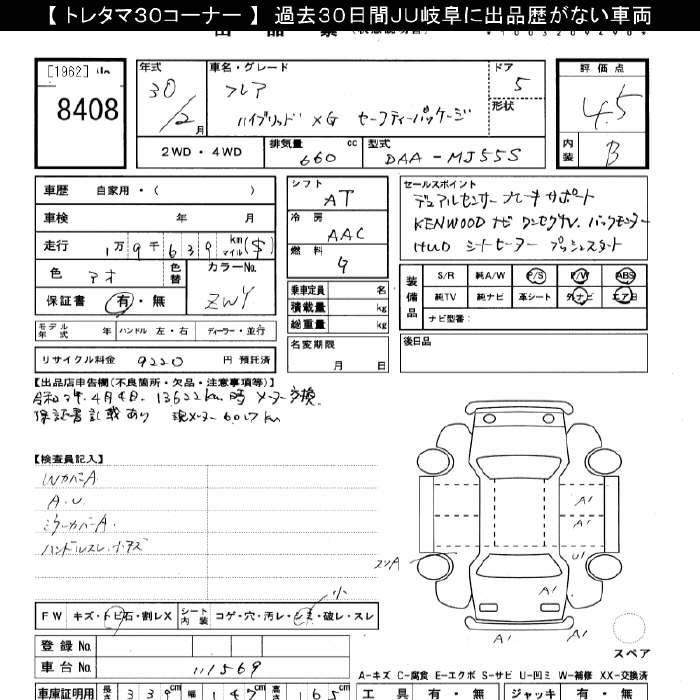 【 トレタマ30コーナー 】 過去30日間JU岐阜に出品歴がない車両
[1962]
8408
年式
30
/2 月
車名・グレード
フレア
ハイブリッド XG セーフティーパッケージ
ドア
5
形状
評価点
4.5
内装
B
2WD ・ 4WD
排気量
660 cc
型式
DAA-MJ55S
車歴 自家用・( )
車検 年 月
走行 1万9千639 km マイル ($)
色 アオ
色替
カラーNo.
ZWY
保証書 有・無
モデル年式 年
ハンドル 左・右
ディーラー・並行
リサイクル料金 9220 円 預託済
シフト
AT
冷房
AAC
燃料
G
乗車定員 名
積載量 kg
総重量 kg
名変期限
月 日
セールスポイント
デュアルセンサーブレーキサポート
KENWOODナビ ワンセグTV. バックモニター
HUD シートヒーター プッシュスタート
装備品
S/R 純A/W P/S P/W ABS
純TV 純ナビ 革シート 外ナビ エアB
ナビ型番:
後日品
【出品店申告欄(不良箇所・欠品・注意事項等)】
令和2年.4月4日. 13622km時 メーター交換.
保証書記載あり 現メーター6017km
【検査員記入】
WカバーA
A.U
ミラーカバーA.
ハンドルスレ.
FW キズ・トビ石・割レX
シート内装 コゲ・穴・汚レ・シミ・破レ・スレ
小
登録 No.
車台 No. 111569
A'
A'
U'
A'
A'
A'
スペア
A-キズ C-腐食 E-エクボ S-サビ U-凹ミ W-補修 XX-交換済
車庫証明用 長さ 339cm 幅 147cm 高さ 165cm
工具 有・無 ジャッキ 有・無